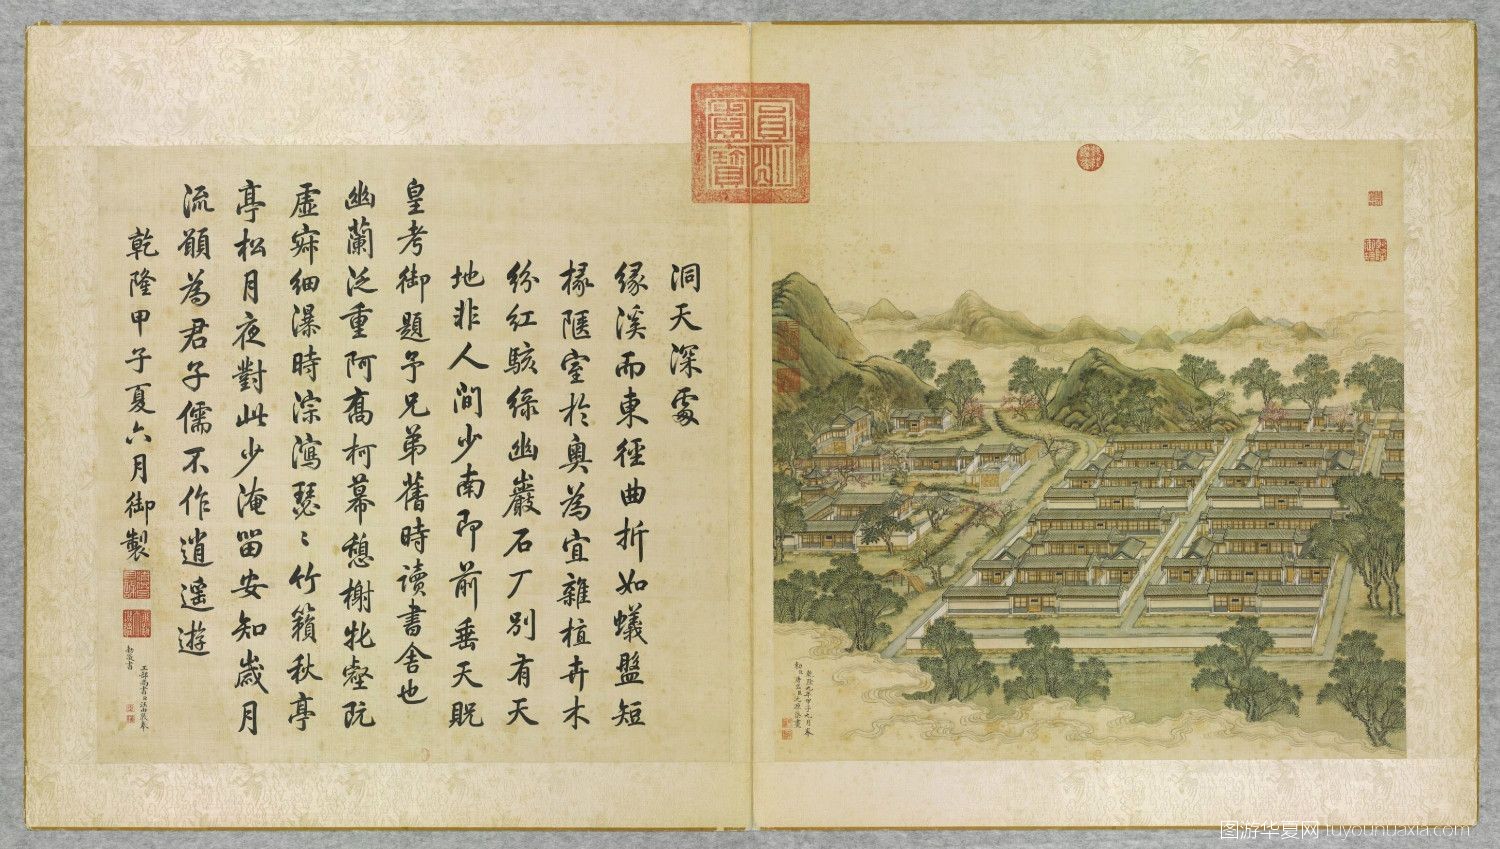 洞天深處
緣溪而東徑曲折如蟻盤短
椽陿室於奧為宜雜植卉木
紛紅駭綠幽巖石厂別有天
地非人間少南即前垂天貺
皇考御題予兄弟舊時讀書舍也
幽蘭泛重阿喬柯幕憩榭牝壑阮
虛寂細瀑時淙瀉瑟〻竹籟秋亭
亭松月夜對此少淹留安知歲月
流願為君子儒不作逍遙遊
乾隆甲子夏六月御製
工部尚書臣汪由敦奉
勅敬書
圓明園寶
乾隆九年甲子九月奉
勅臣唐岱沈源恭畫
图游华夏网 tuyouhuaxia.com